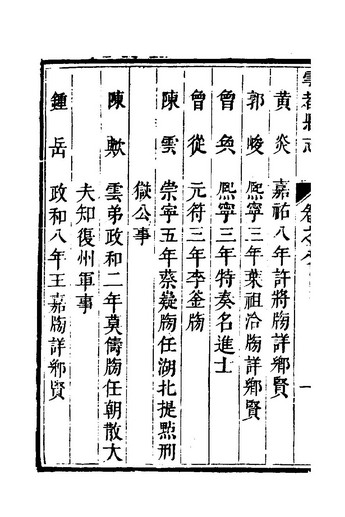 雲都縣志
黃炎　嘉祐八年許將牓詳鄉賢
郭峻　熈寧三年葉祖洽牓詳鄉賢
曾奐　熈寧三年特奏名進士
曾從　元符三年李釜牓
陳雲　崇寧五年蔡薿牓任湖北提點刑
獄公事
陳歟　雲弟政和二年莫儔牓任朝散大
夫知復州軍事
鍾岳　政和八年王嘉牓詳鄉賢